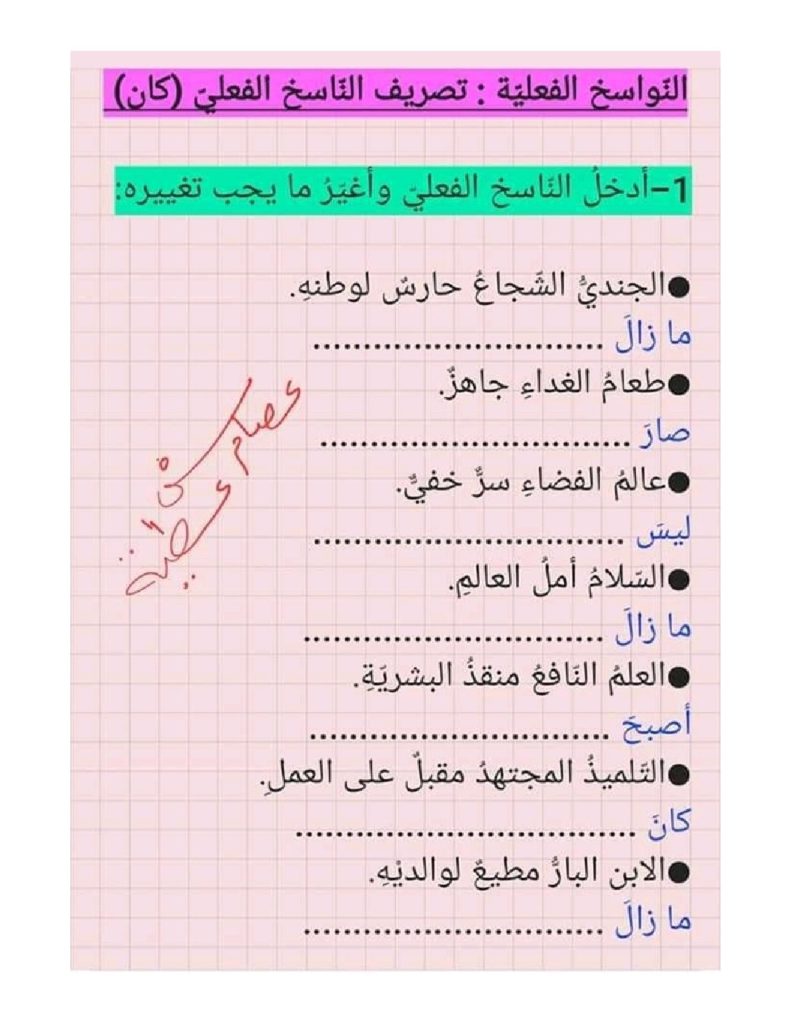 النّواسخ الفعليّة : تصريف النّاسخ الفعليّ (كان)
1–أدخلُ النّاسخ الفعليّ وأغيّرُ ما يجب تغييره:
●الجنديُّ الشّجاعُ حارسٌ لوطنهِ.
ما زالَ .............................
●طعامُ الغداءِ جاهزٌ.
صارَ ..............................
●عالمُ الفضاءِ سرٌّ خفيٌّ.
ليسَ ..............................
●السّلامُ أملُ العالمِ.
ما زالَ .............................
●العلمُ النّافعُ منقذُ البشريّةِ.
أصبحَ .............................
●التّلميذُ المجتهدُ مقبلٌ على العملِ.
كانَ .................................
●الابن البارُّ مطيعٌ لوالديْهِ.
ما زالَ .............................
عصام